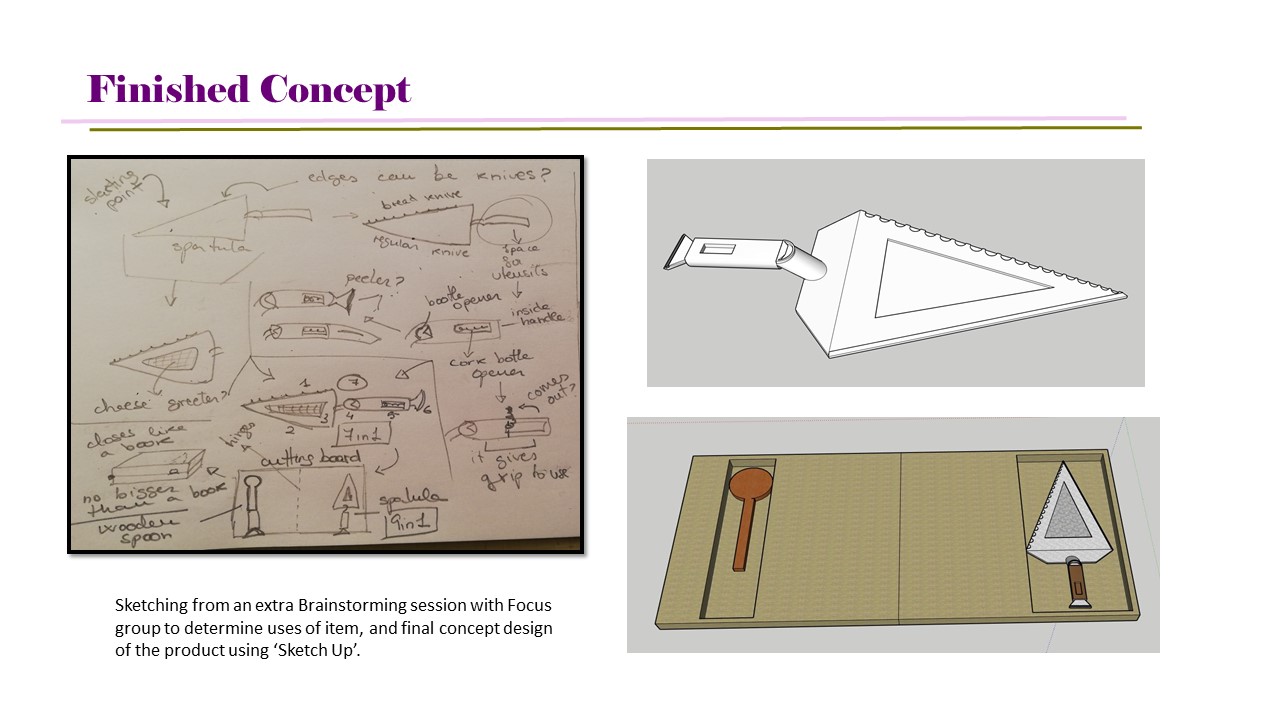 Finished Concept
starting
point
edges can be knives?
bread knive
spartula
regular knive
space
for
utensils
peeler?
bootle
opener
inside
handle
cork botle
opener
comes
out?
cheese greeter?
1
7
2
3
4
5
6
7 in 1
it gives
grip to use
closes like
a book
hinges
cutting board
no bigger
than a book
wooden
spoon
spatula
9 in 1
Sketching from an extra Brainstorming session with Focus
group to determine uses of item, and final concept design
of the product using ‘Sketch Up’.